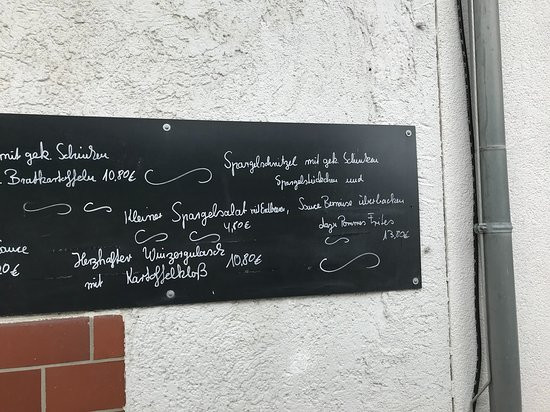 mit gek. Schinken
Bratkartoffeln 10,80€
Kleiner Spargelsalat mit Erdbeeren,
4,80€
Herzhafter Winzergulasch
mit Kartoffelkloß 10,80€
Spargelschnitzel mit gek. Schinken
Spargelstückchen und
Sauce Bernaise überbacken
dazu Pommes Frites
13,80€